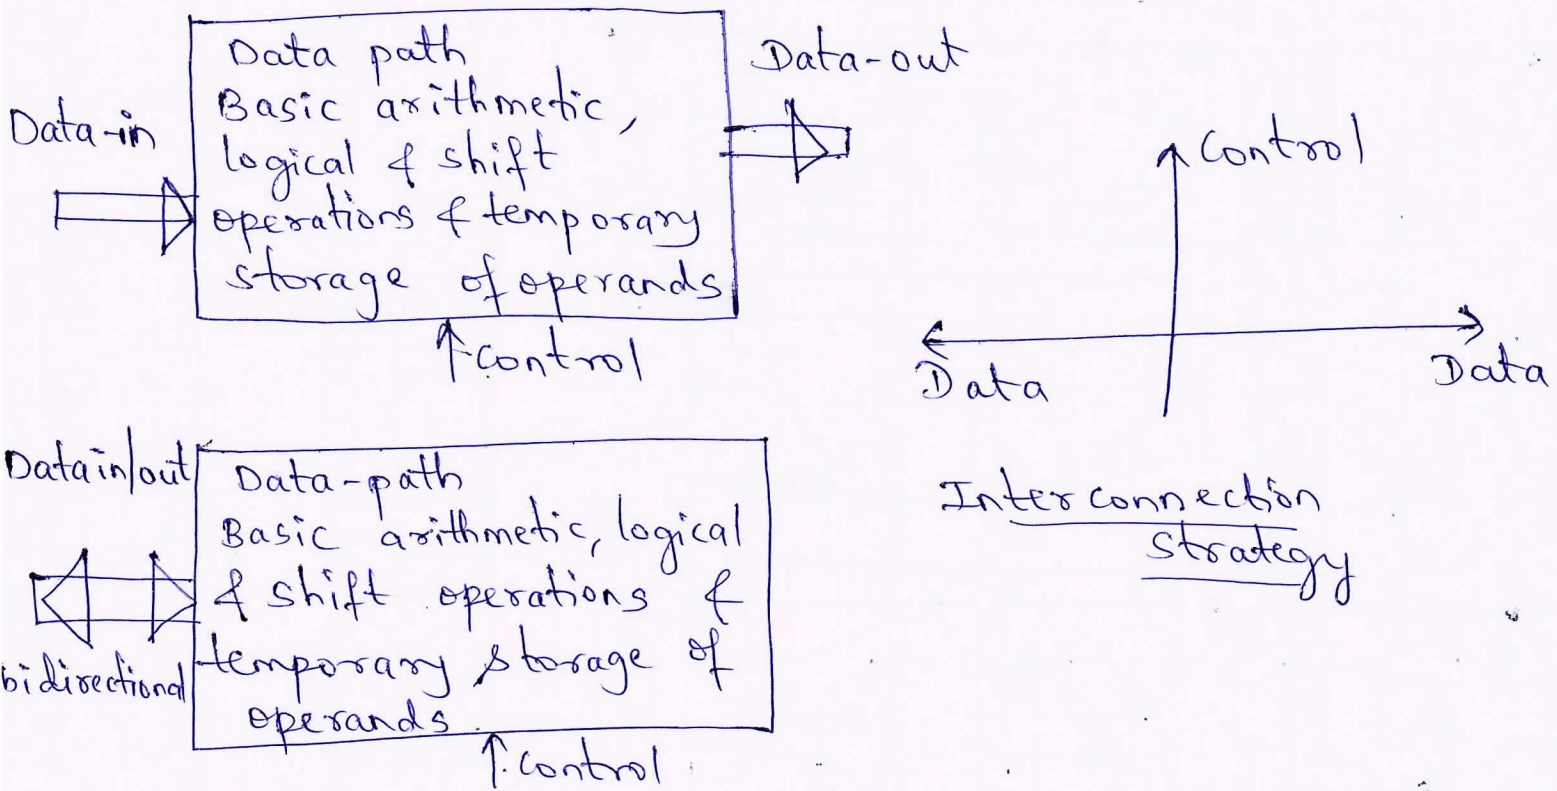 Data path
Basic arithmetic,
logical & shift
operations & temporary
storage of operands
Data-in
Data-out
Control
Control
Data
Data
Interconnection
strategy
Data in/out
bidirectional
Data-path
Basic arithmetic, logical
& shift operations &
temporary storage of
operands.
Control